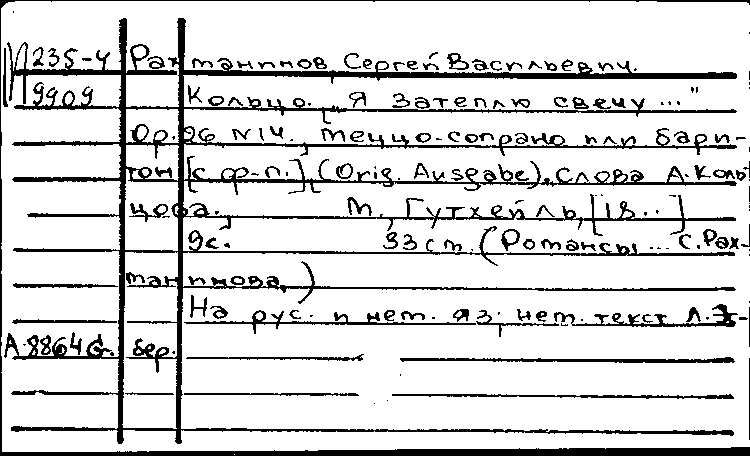 М 235-4 Рахманинов, Сергей Васильевич.
9909 Кольцо. „Я затеплю свечу..."
Op. 26, N14., меццо-сопрано или бари-
тон [с ф-п.], (Orig. Ausgabe). Слова А. Коль
цова., М., Гутхейль, [18..]
9с. 33 ст. (Романсы... С. Рах-
манинова.)
На рус. и нем. яз; нем. текст Л. Э-
A.8864G. бер.